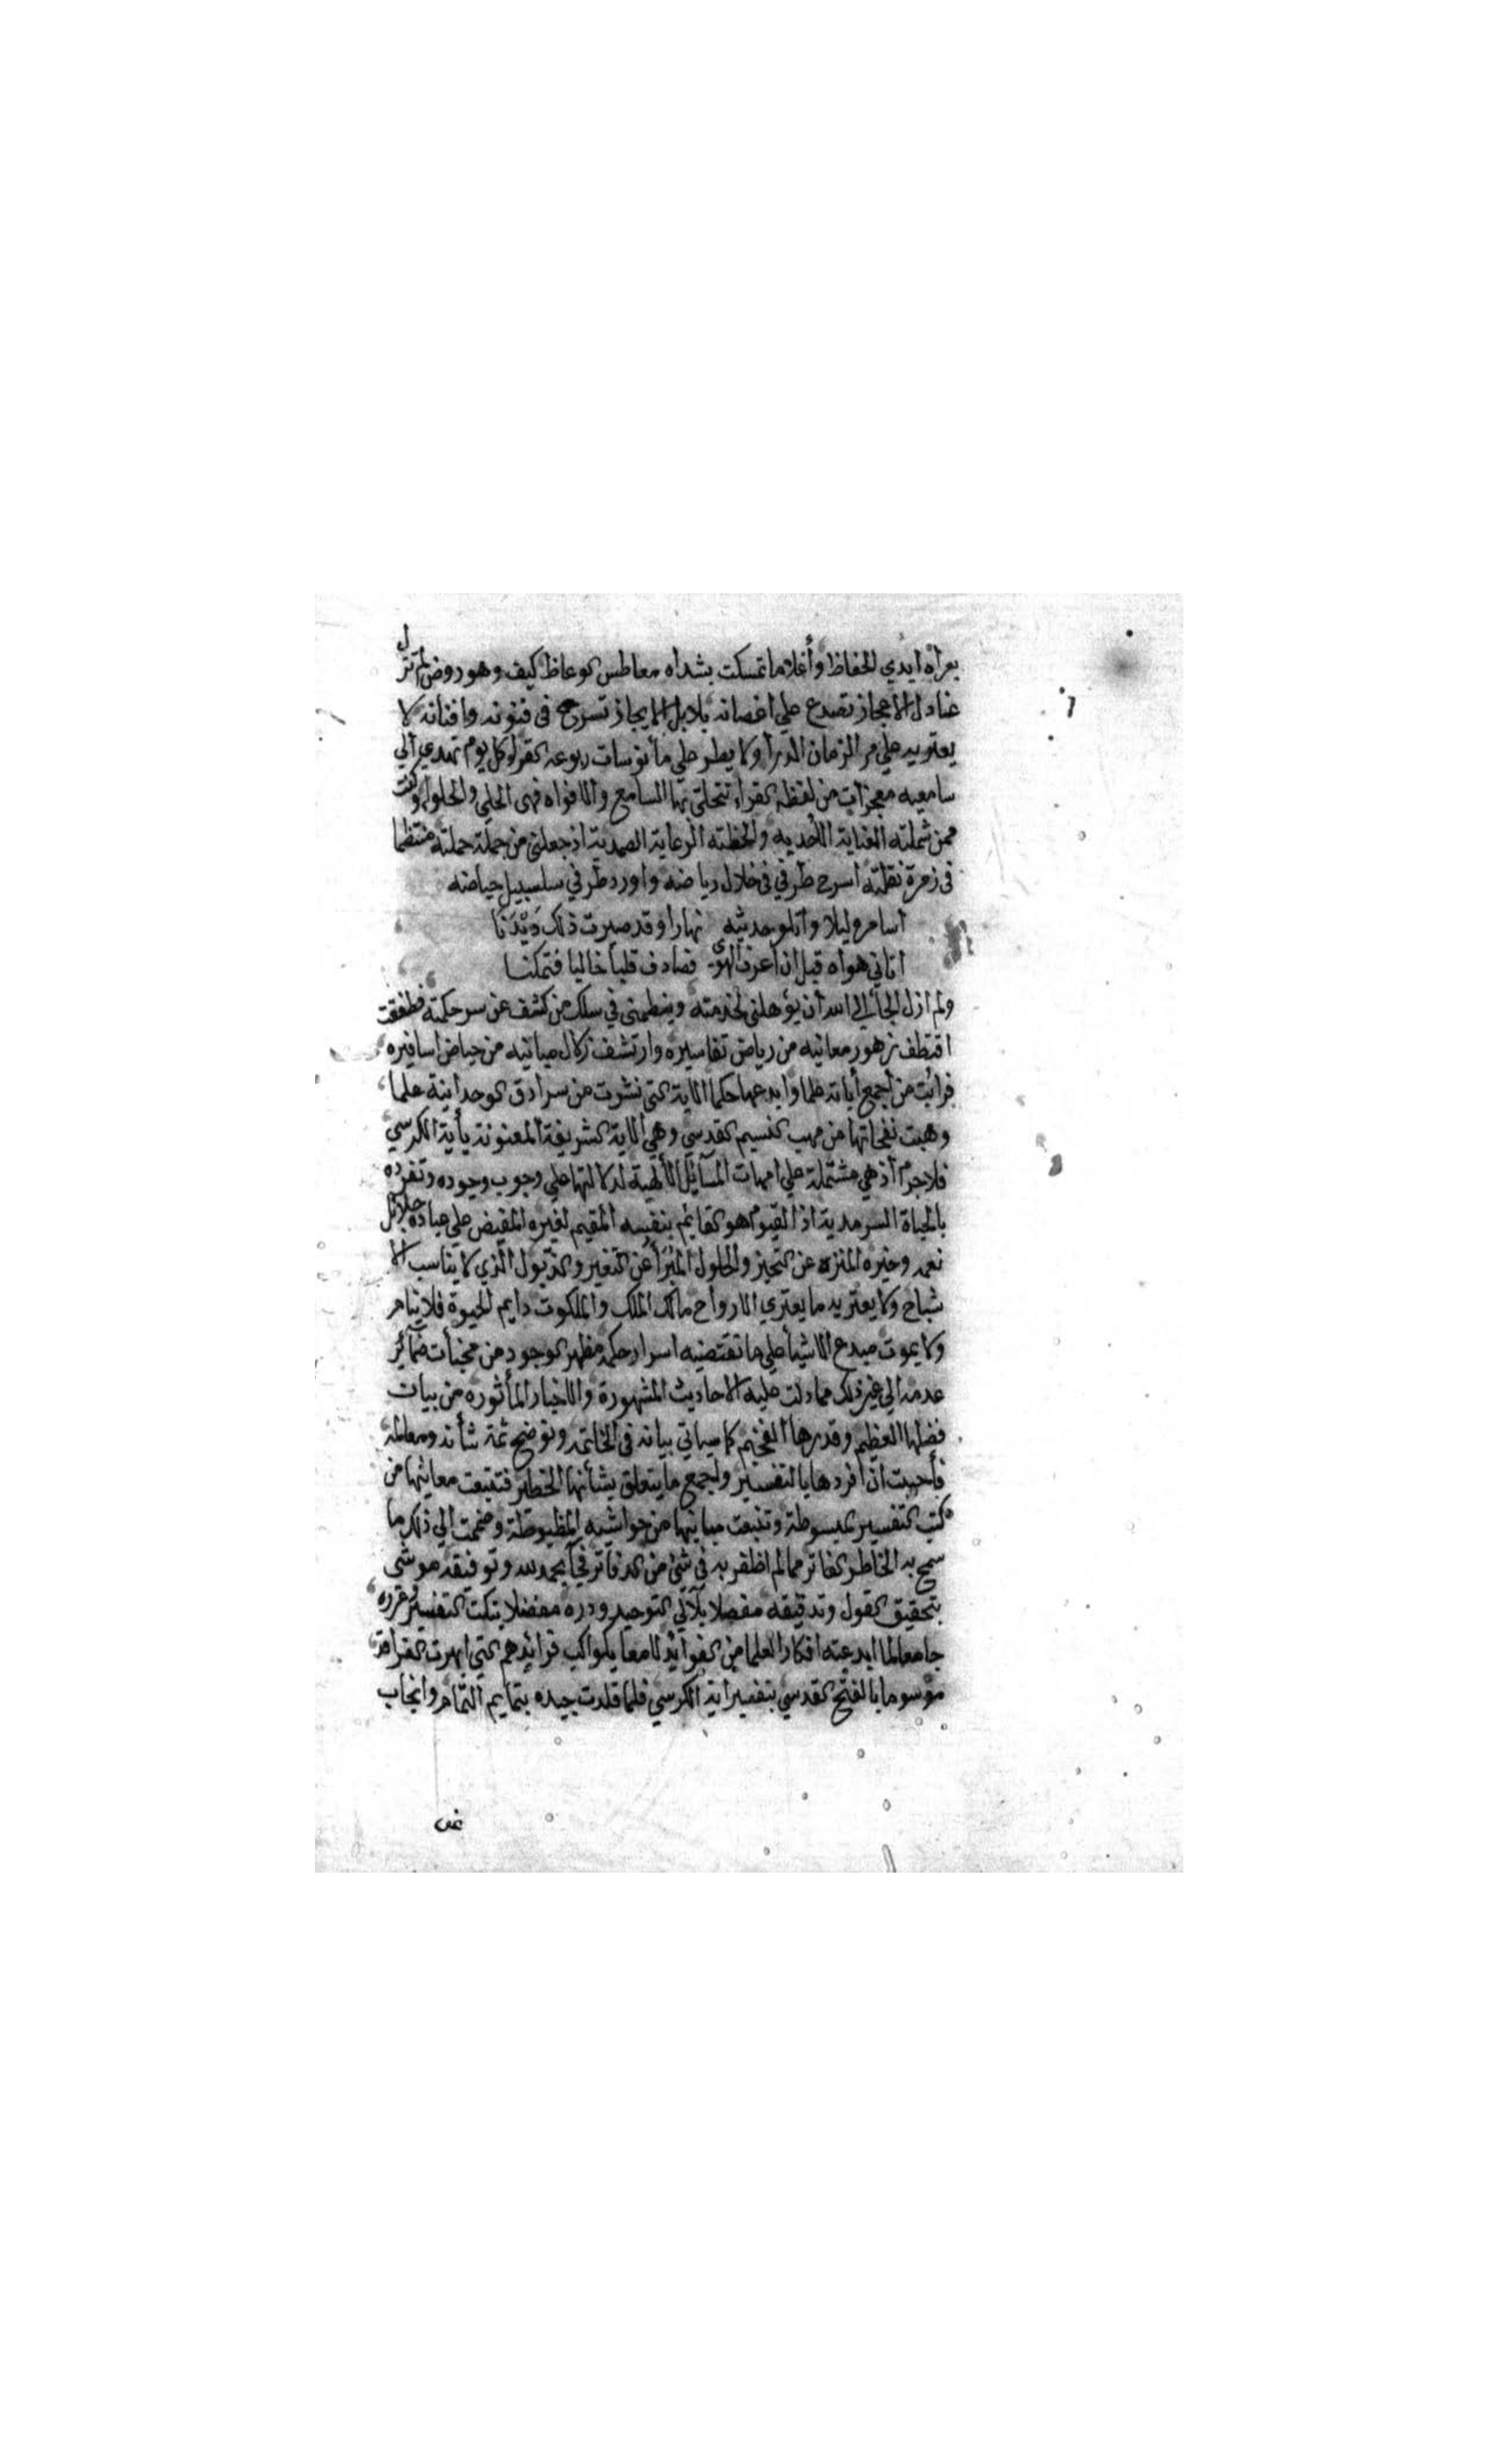 بعراه ايدي الحفاظ وأغلاما تمسكت بشذاه معاطس الوعاظ كيف وهو روض لم تزل
عنادل الاعجاز تصدع علي اغصانه بلابل الايجاز تسرح في فنونه وافنانه لا
يعتريه علي مر الزمان الدرأ ولا يطر علي مأنوسات ربوعه القرا وكل يوم تهدي الي
سامعيه معجزات من لفظه القراء تتحلي بها المسامع والافواه فهي الحلي والحلواء وكنت
ممن شملته العناية الأحديه ولحظته الرعاية الصمدية اذ جعلني من جملة حملته منتظما
في زمرة نقلته اسرح طرفي في خلال رياضه واورد طرفي سلسبيل حياضه
أسامره ليلا وأتلو حديثه نهارا وقد صيرت ذلك دَيْدَنَا
اتاني هواه قبل ان أعرف الهوي فصادف قلبا خاليا فتمكنا
ولم ازل الجأ الي الله أن يؤهلني لخدمته وينظمني في سلك من كشف عن سر حكمته فطفقت
اقتطف زهور معانيه من رياض تفاسيره وارتشف زلال مبانيه من حياض اسافيره
فرايت من أجمع أياته علما وابدعها حكما الاية التي نشرت من سرادق الوحدانية علما
وهبت نفحاتها من مهب النسيم القدسي وهي الاية الشريفة المعنونة بأية الكرسي
فلاجرم أذ هي مشتملة علي امهات المسآئل الألهية لدلالتها علي وجوب وجوده وتفرده
بالحياة السرمدية اذ القيوم هو القايم بنفسه المقيم لغيره المفيض علي عباده جلائل
نعمه وخيره المنزه عن التحيز والحلول المبرأ عن التغير والذبول الذي لا يناسب الا
شباح ولا يعتريه ما يعتري الارواح مالك الملك والملكوت دايم الحيوة فلا ينام
ولا يموت مبدع الاشيأ علي ما تقتضيه اسرار حكمه مظهر الوجود من مخبأت ضمآئر
عدمه الي غير ذلك مما دلت عليه الاحاديث المشهورة والاخبار المأثوره من بيان
فضلها العظيم وقدرها الفخيم كما سياتي بيانه في الخاتمه ونوضح ثمة شأنه ومعالمه
فأحببت ان افردها بالتفسير واجمع ما يتعلق بشأنها الخطير فتتبعت معانيها من
كتب التفسير المبسوطة وتتبعت مبانيها من حواشيه المظبوطة وضممت الي ذلك ما
سمح به الخاطر الفاتر مما لم اظفر به في شئ من الدفاتر فجآ بحمد الله وتوفيقه موشي
بتحقيق القول وتدقيقه مفصلا بلآلي التوحيد ودره مفضلا بنكت التفسير وغرره
جامعا لما ابدعته افكار العلما من الفوائد لامعا بكواكب فرائدهم التي ابهرت الفراقد
موسوما بالفتح القدسي بتفسير اية الكرسي فلما قلدت جيده بتمايم التمام وانجاب
عن